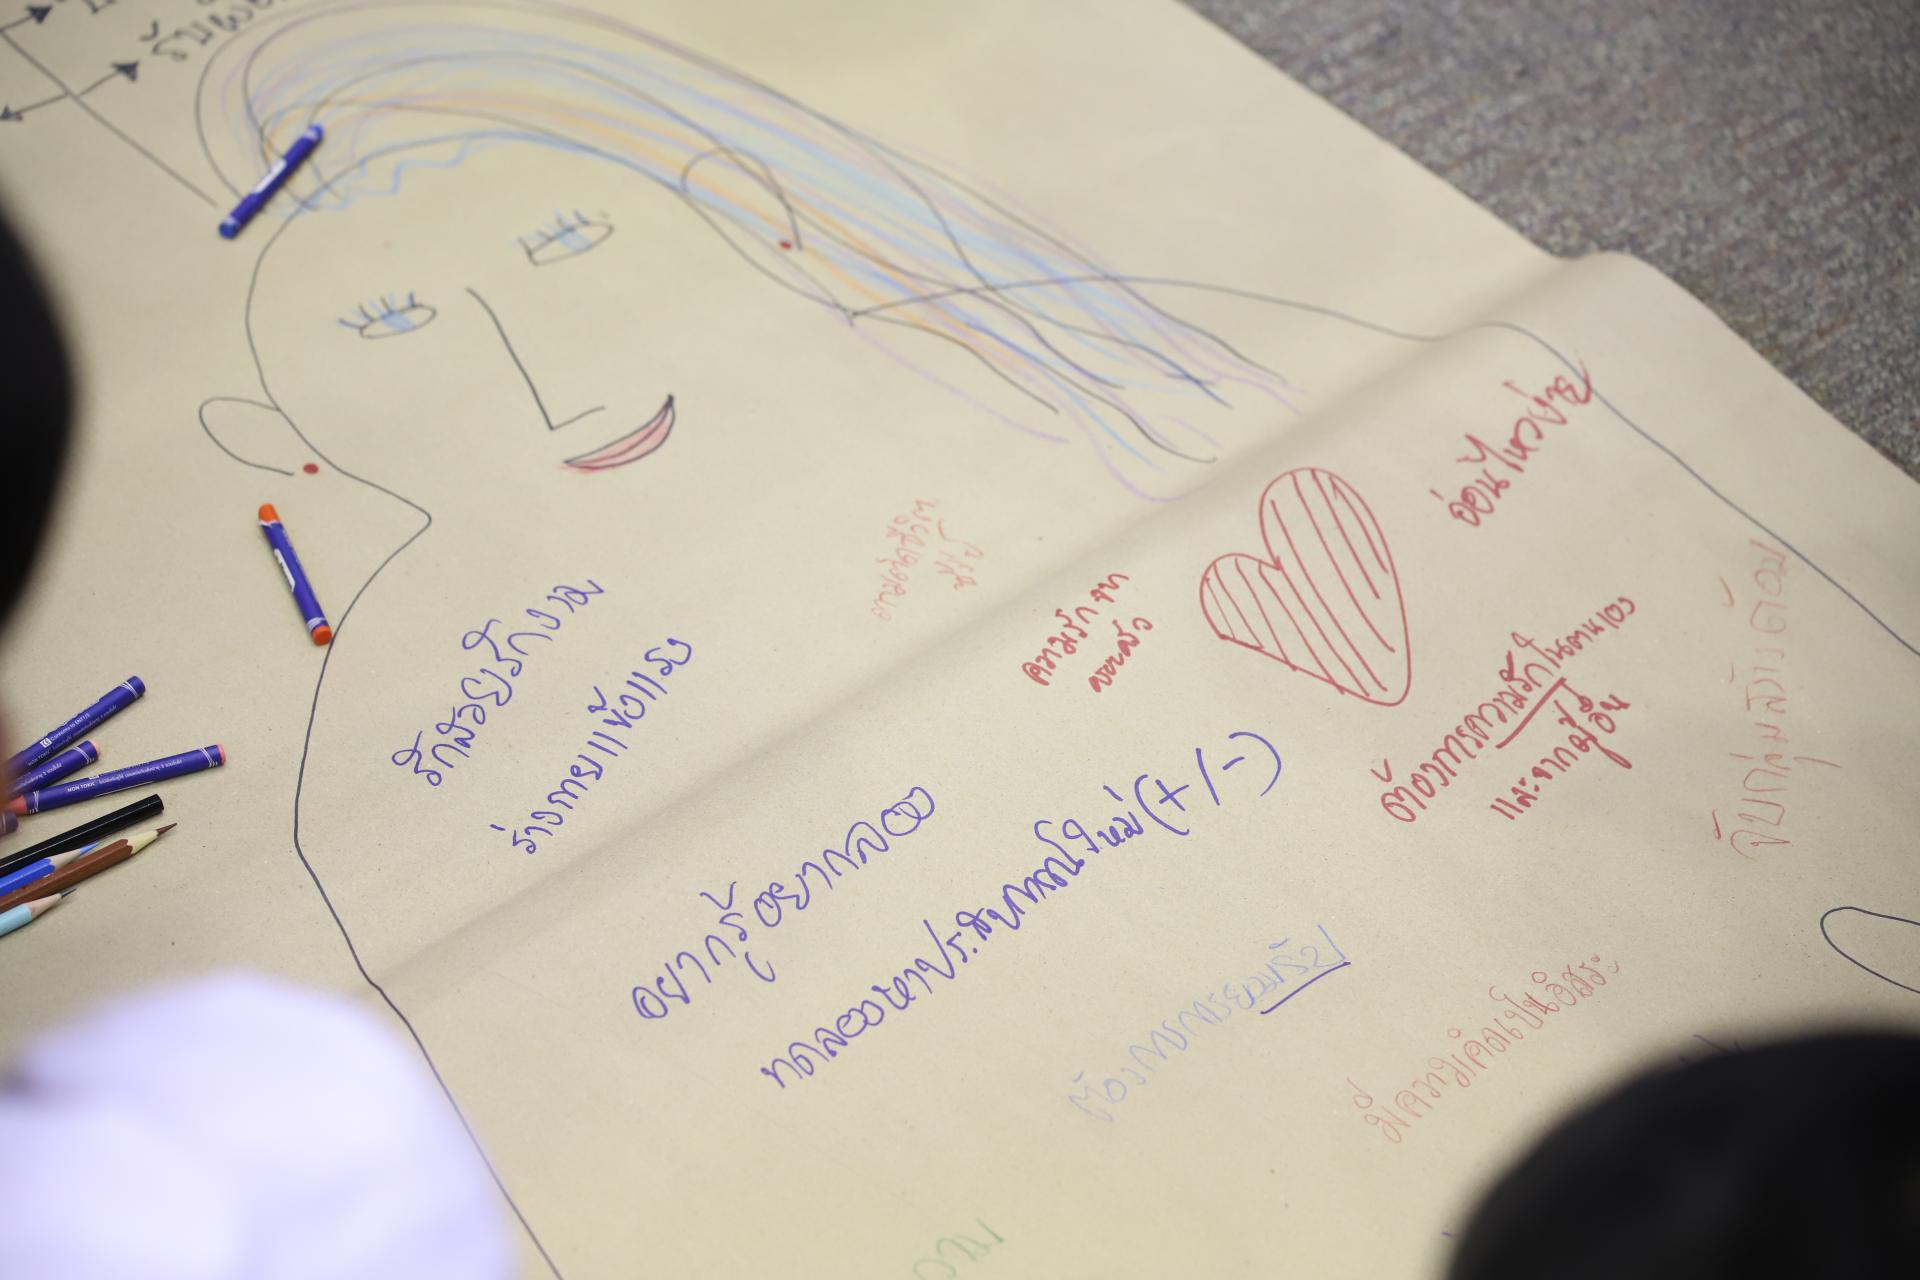 รักสวยรักงาม
ร่างกายแข็งแรง
อยากรู้อยากลอง
ทดลองหาประสบการณ์ใหม่ (+/-)
ต้องการการยอมรับ
ความรักจาก
อ่อนไหวง่าย
ต้องการความรักในตนเอง
และจากผู้อื่น
จับกลุ่มสังคม
มีความคิดเป็นอิสระ
NON TOXIC